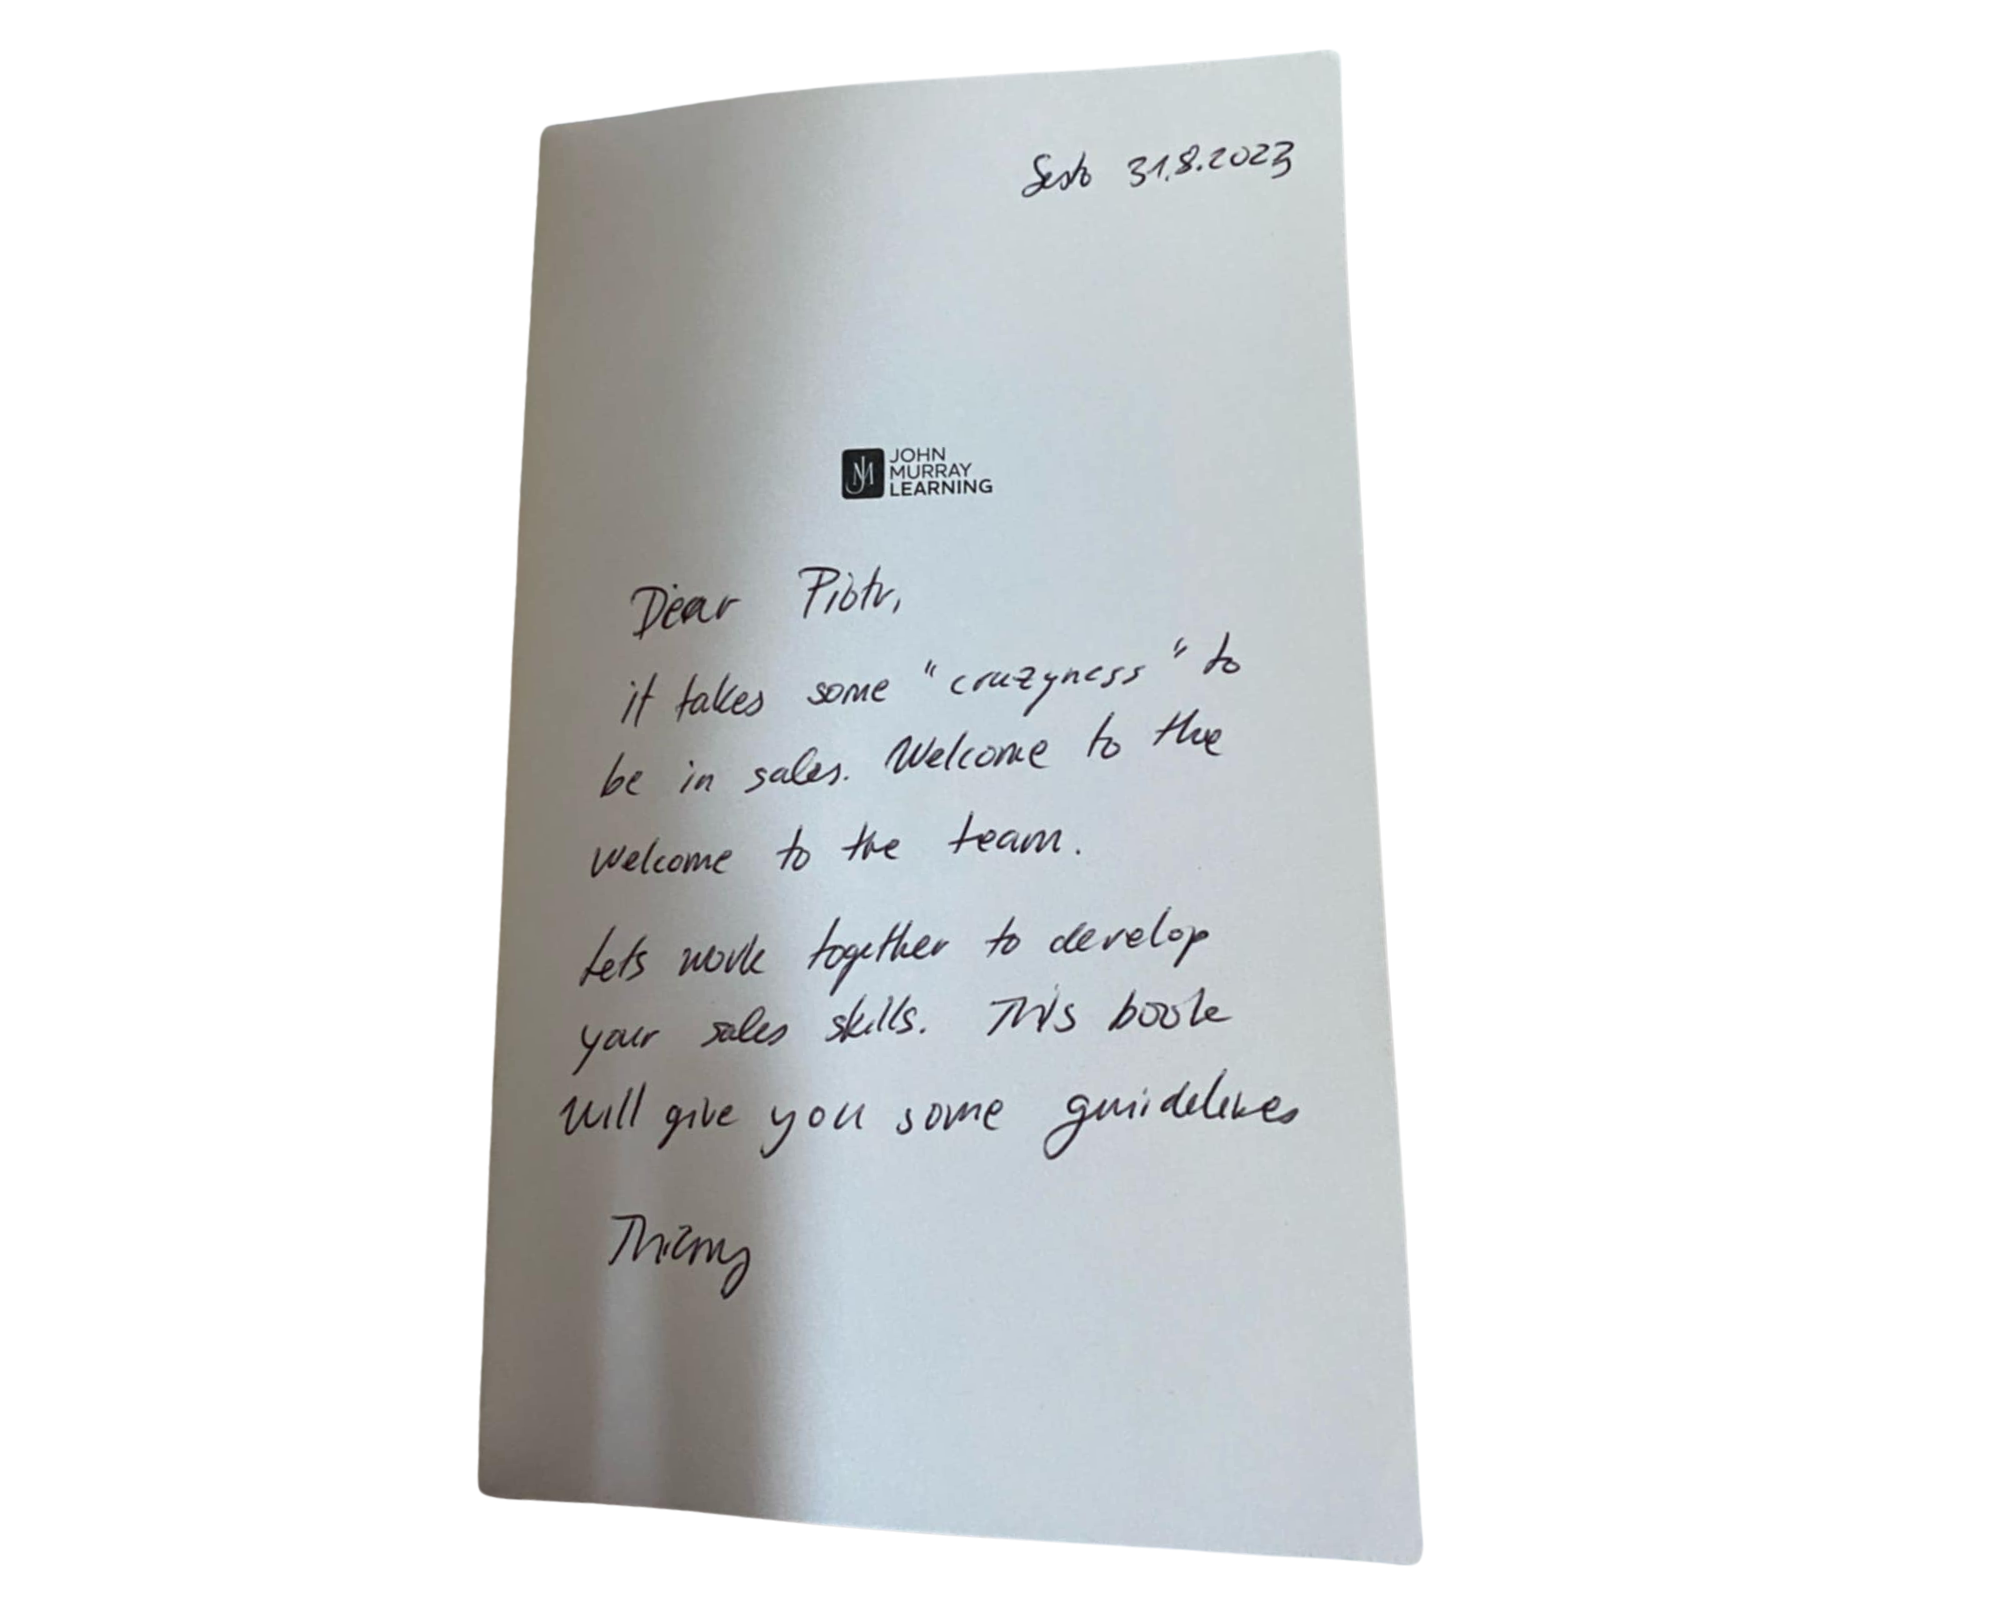 Sesto 31.8.2023
JOHN
MURRAY
LEARNING
Dear Piotr,
it takes some "crazyness" to
be in sales. Welcome to the
Welcome to the team.
Lets work together to develop
your sales skills. This book
will give you some guidelines
Thierry